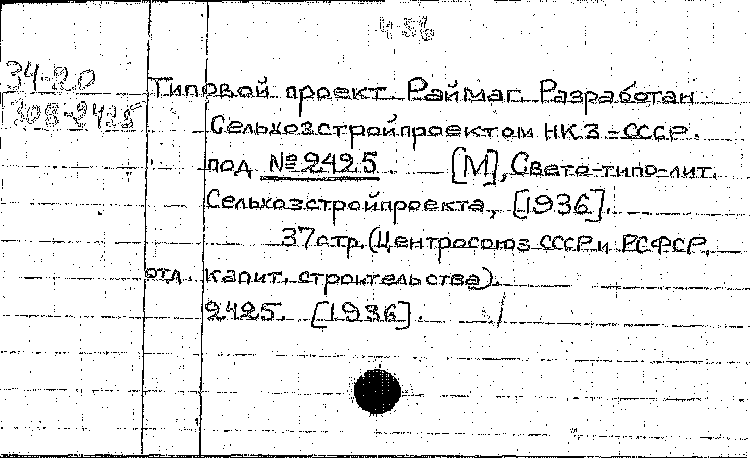 4-56
34-20
308-2425
Типовой проект. Раймаг. Разработан
Сельхозстройпроектом НКЗ-СССР.
под №2425. [М], Свето-типо-лит.
Сельхозстройпроекта, [1936].
37 стр. (Центросоюз СССР и РСФСР,
отд. капит. строительства).
2425. [1936].